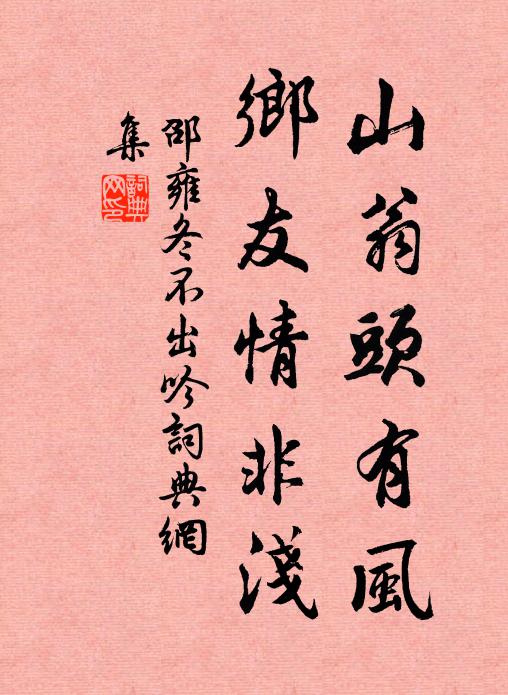 山翁頭有風
鄉友情非淺
邵雍冬不出吟詞典網
集
詞典
网印